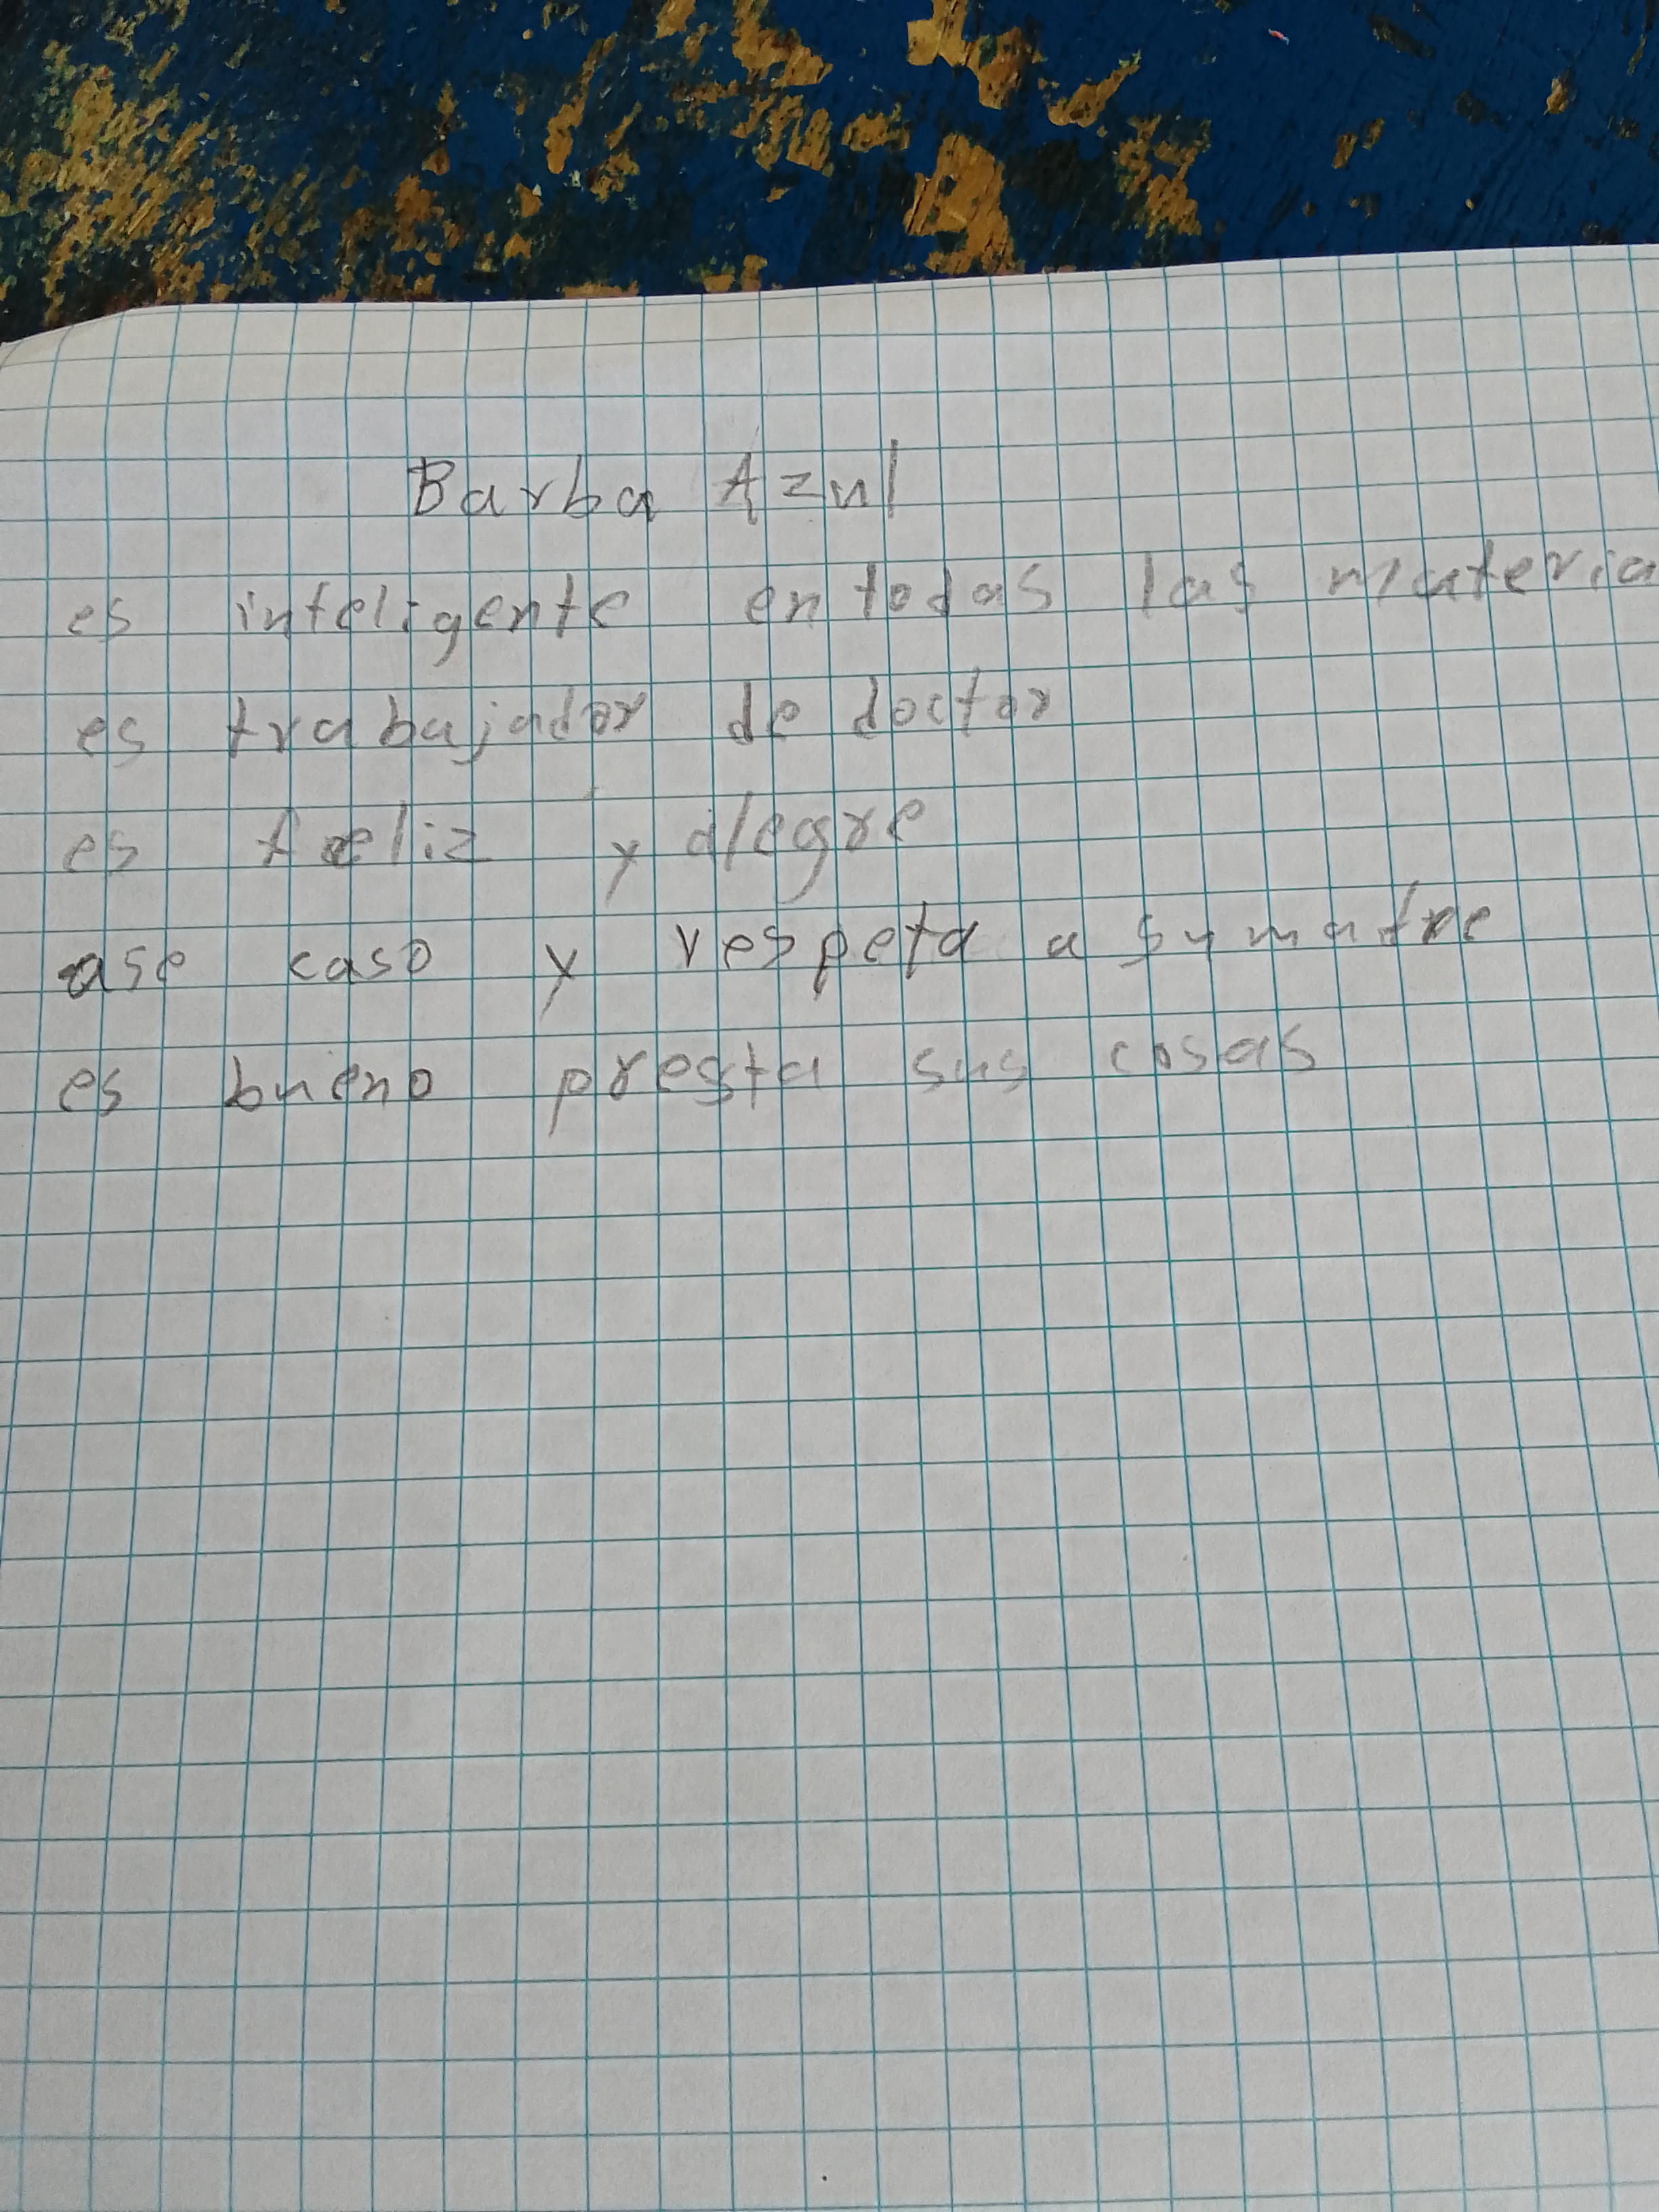 Barba Azul
es inteligente en todas las materia
es trabajador de doctor
es feliz y alegre
ase caso y respeta a su madre
es bueno presta sus cosas